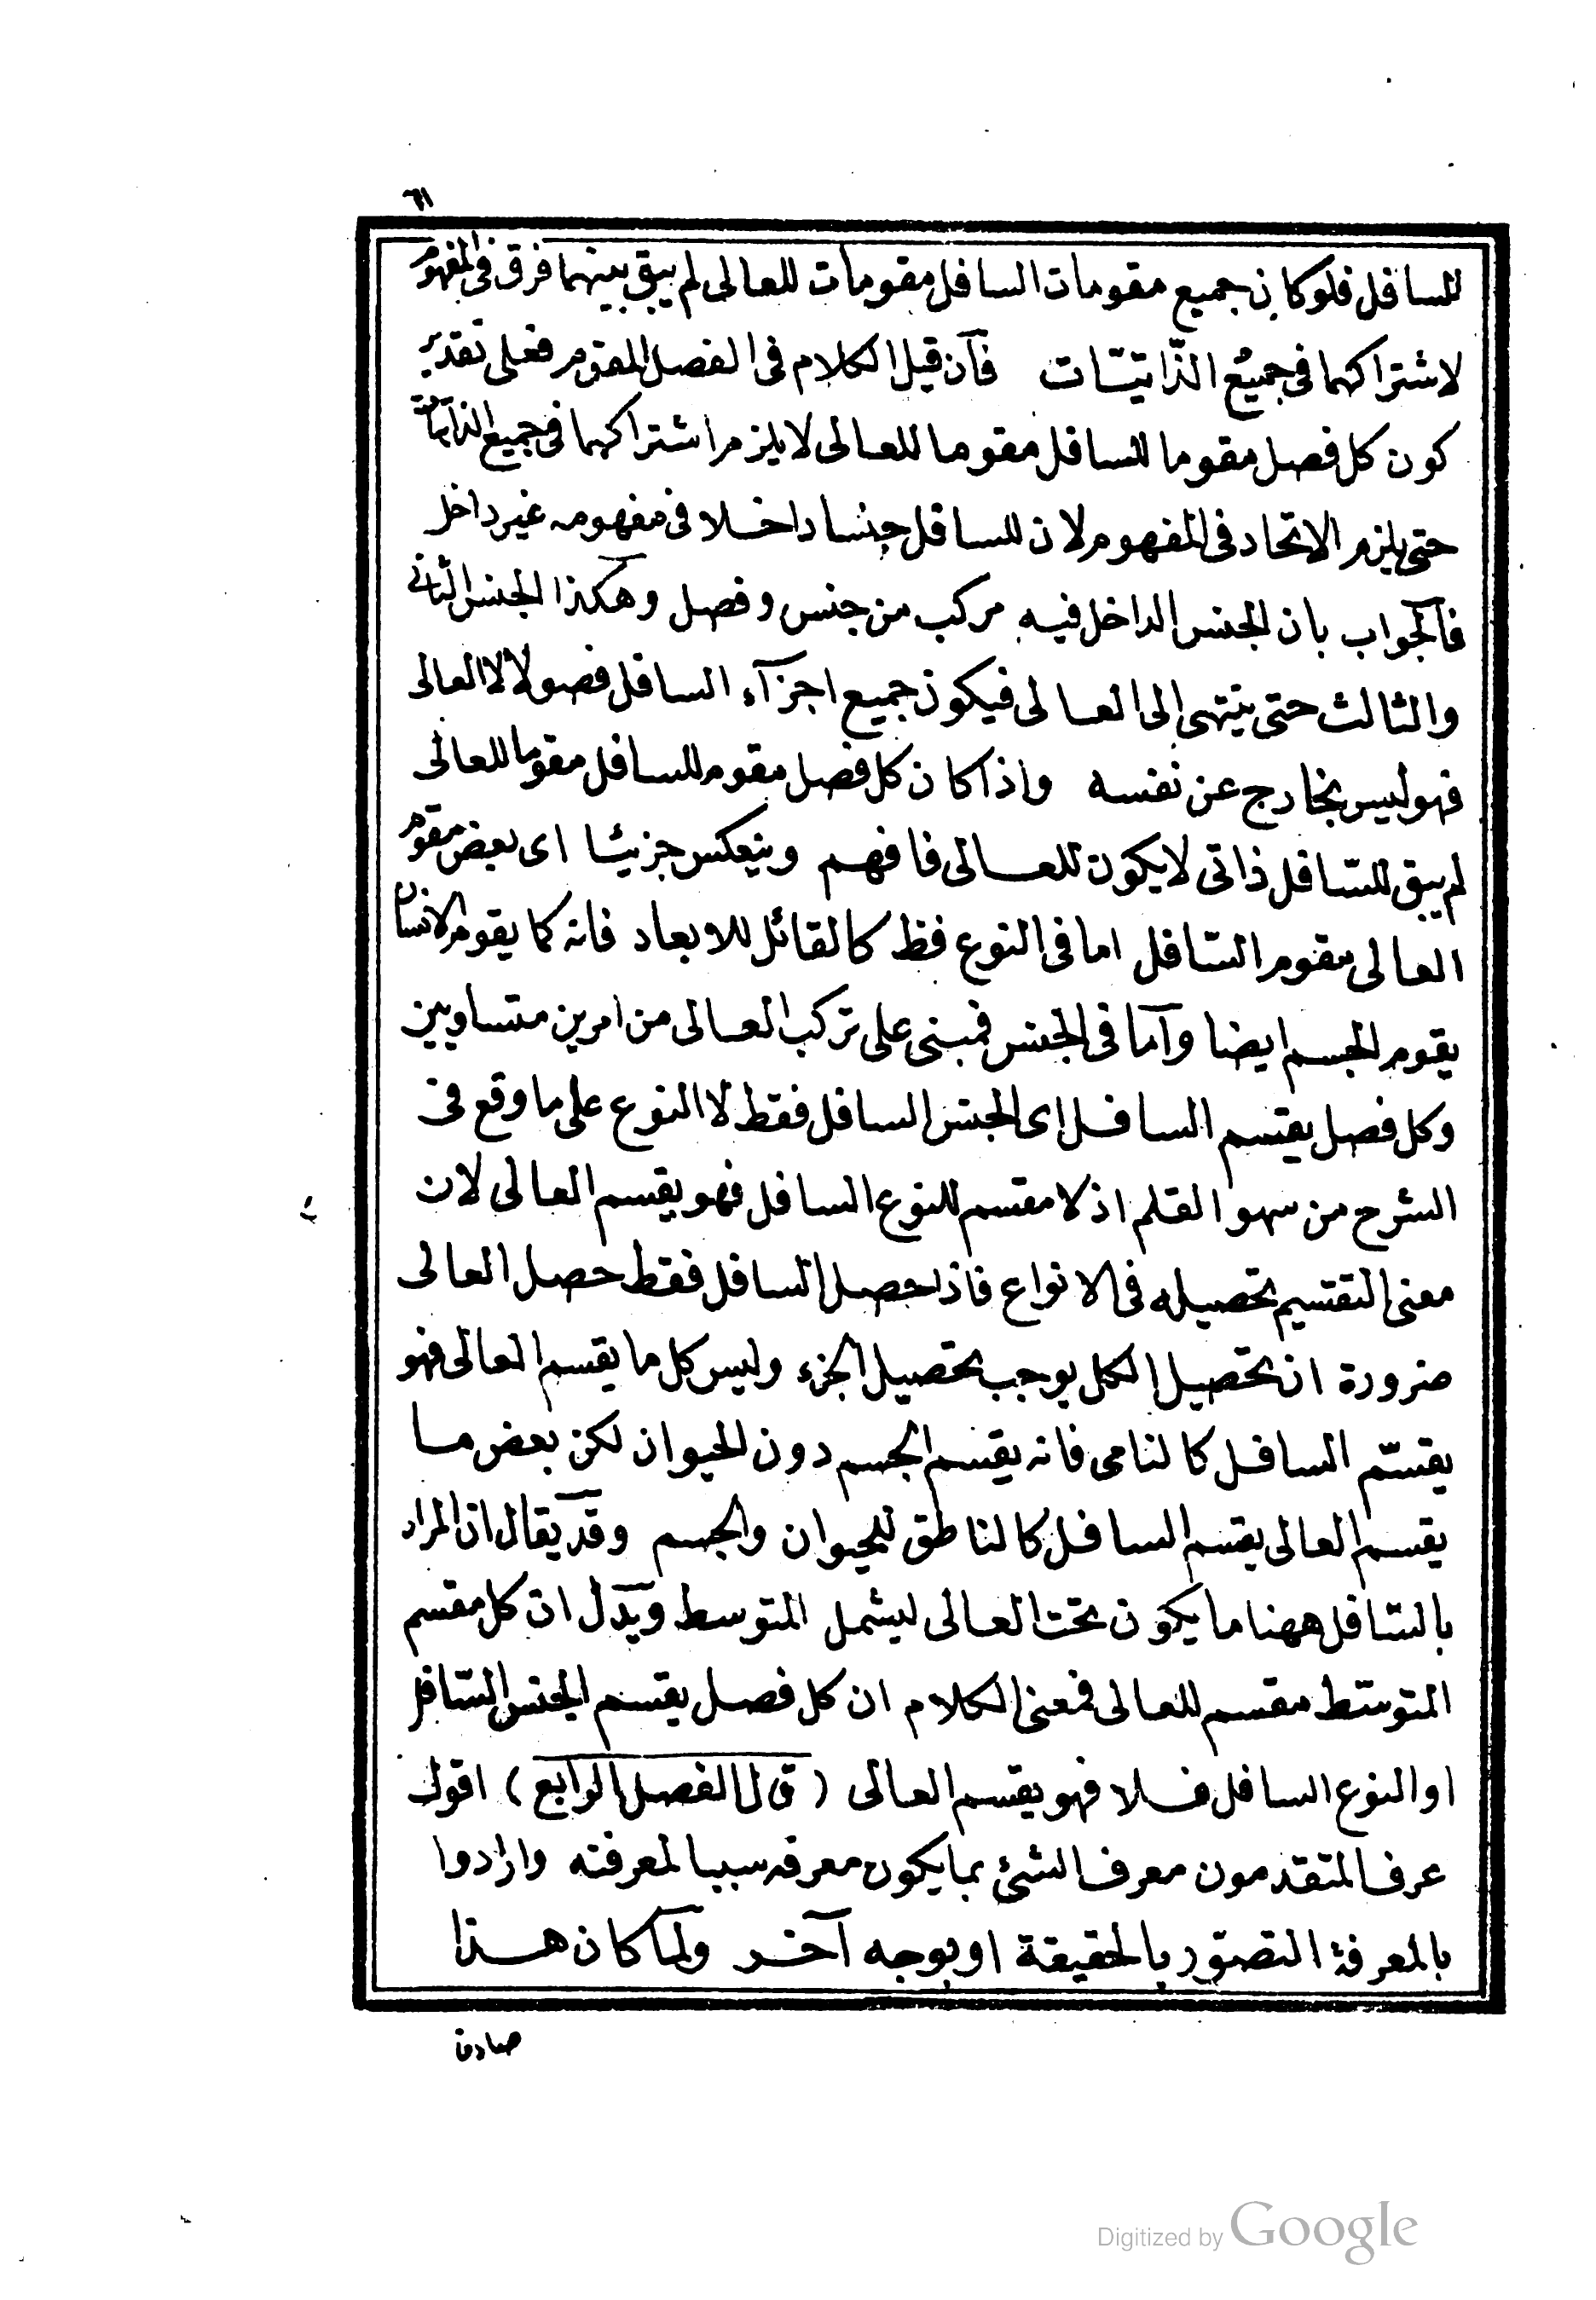 ٦١
للسافل فلو كان جميع مقومات السافل مقومات للعالى لم يبق بينهما فرق فى المفهوم
لاشتراكهما فى جميع الذّاتيّات فآن قيل الكلام فى الفصل المقوم فعلى تقدير
كون كل فصل مقوما للسافل مقوما للعالى لا يلزم اشتراكهما فى جميع الذاتيات
حتى يلزم الاتحاد فى المفهوم لان للسافل جنسا داخلا فى مفهومه غير داخل
فآلجواب بان الجنس الداخل فيه مركب من جنس وفصل وهكذا الجنس الثانى
والثالث حتى ينتهى الى العالى فيكون جميع اجزآء السافل فصولا لا العالى
فهو ليس بخارج عن نفسه واذا كان كل فصل مقوم للسافل مقوما للعالى
لم يبق للسّافل ذاتى لا يكون للعالى فافهم وينعكس جزئيا اى بعض مقوم
العالى مقوم السّافل اما فى النوع فظ كالقائل للابعاد فانه كما يقوم الانسان
يقوم الجسم ايضا وآما فى الجنس فمبنى على تركب العالى من امرين متساويين
وكل فصل يقسم السافل اى الجنس السافل فقط لا النوع على ما وقع فى
الشرح من سهو القلم اذ لا مقسم للنوع السافل فهو يقسم العالى لان
معنى التقسيم تحصيله فى الانواع فاذا حصل السافل فقط حصل العالى
ضرورة ان تحصيل الكل يوجب تحصيل الجزء وليس كل ما يقسم العالى فهو
يقسّم السافل كالنامى فانه يقسم الجسم دون الحيوان لكن بعض ما
يقسم العالى يقسم السافل كالناطق للحيوان والجسم وقد يقال ان المراد
بالسّافل ههنا ما يكون تحت العالى ليشمل المتوسط ويدل ان كل مقسم
المتوسّط مقسم للعالى فمعنى الكلام ان كل فصل يقسم الجنس السّافل
او النوع السافل فلا فهو يقسم العالى (قال الفصل الرابع) اقول
عرف المتقدمون معرف الشئ بما يكون معرفته سببا لمعرفته وارادوا
بالمعرفة التصوّر بالحقيقة او بوجه آخر ولما كان هذا
صادق
Digitized by Google